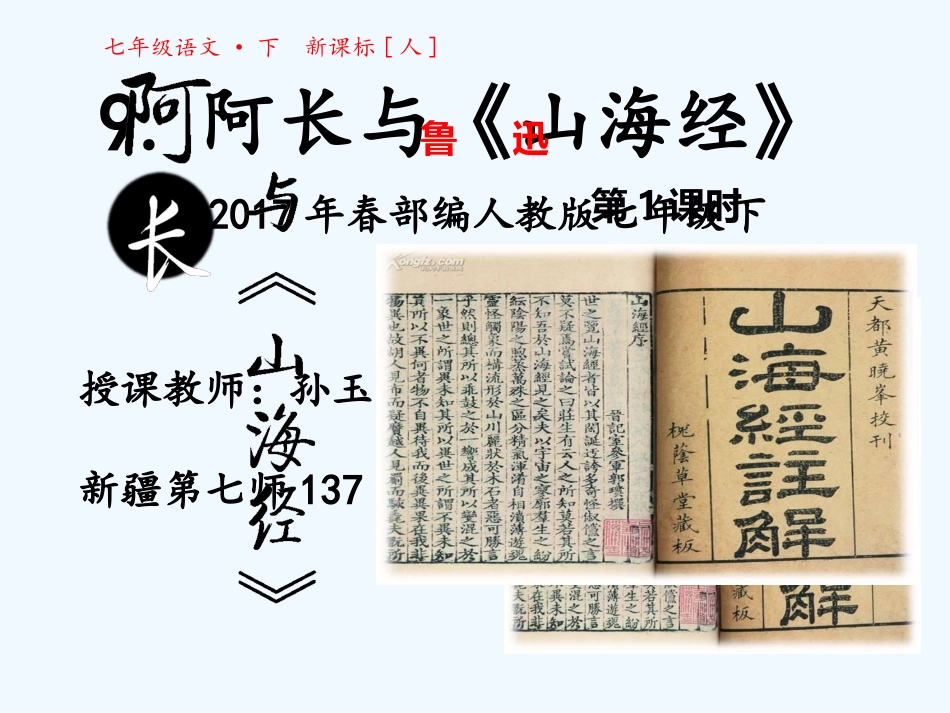 七年级语文·下 新课标[人]
9.阿长与《山海经》
鲁迅
阿
长
与
《山海经》
2017年春部编人教版七年级下
第1课时
授课教师：孙玉
新疆第七师137
天都黄曉峯校刊
山海經註解
桃蔭草堂藏板
山海經序
晉記室參軍郭璞撰
世之覽山海經者皆以其閎誕迂誇多奇怪俶儻之言
莫不疑焉嘗試論之曰莊生有云人之所知莫若其所
不知吾於山海經見之矣夫以宇宙之寥廓羣生之紛
紜陰陽之煦蒸萬殊之區分精氣渾淆自相濆薄遊魂
靈怪觸象而構流形於山川麗狀於木石者惡可勝言
乎然則總其所以乖鼓之於一響成其所以變混之於
一象世之所謂異未知其所以異世之所謂不異未知
其所以不異何者物不自異待我而後異異果在我非
物異也故胡人見布而疑黂越人見罽而駭毳
藏板
解